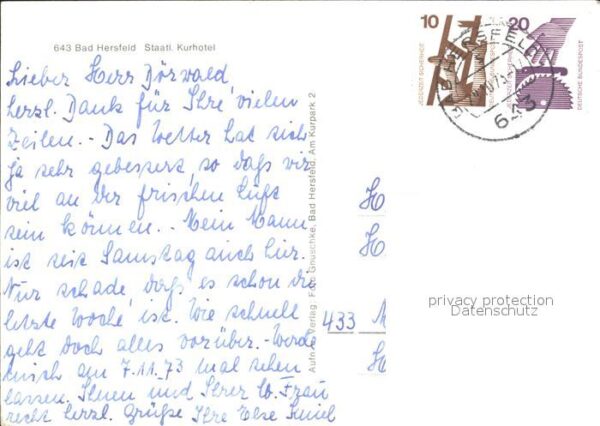 643 Bad Hersfeld Staatl. Kurhotel
Lieber Herr Dörwald
herzl. Dank für Ihre vielen
Zeilen. - Das Wetter hat sich
ja sehr gebessert, so daß wir
viel an der frischen Luft
sein können. - Mein Mann
ist seit Samstag auch hier.
Nur schade, daß es schon die
letzte Woche ist. Wie schnell
geht doch alles vorüber. - Werde
mich am 7.11.73 mal sehen
lassen. Ihnen und Ihrer lb. Frau
recht herzl. Grüße Ihre Else
Aufn. u. Verlag: Foto Gnuschke, Bad Hersfeld, Am Kurpark 2
10
JEDERZEIT SICHERHEIT
20
DEUTSCHE BUNDESPOST
643
H
H
433 M
H
privacy protection
Datenschutz